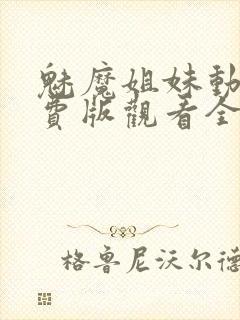 魅魔姐妹動
費版觀看全
格鲁尼沃尔德